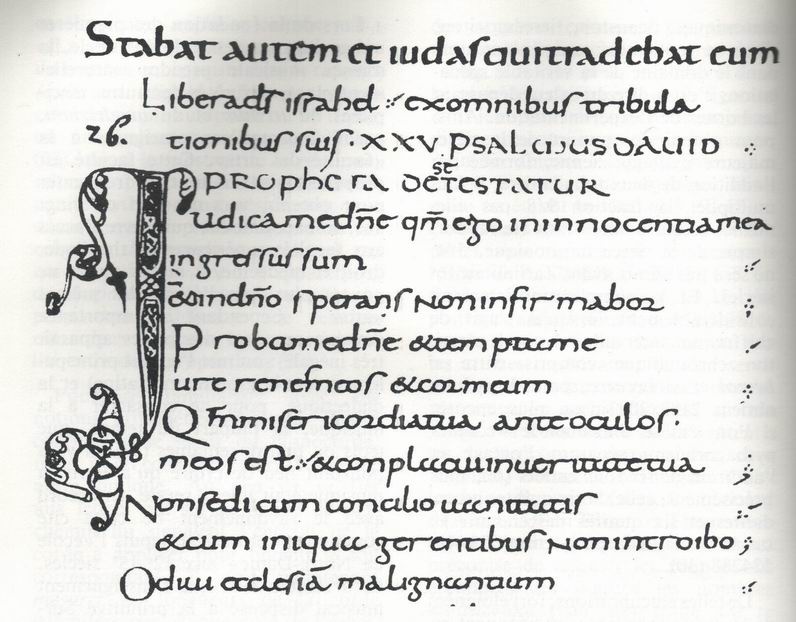 Stabat autem et iudas qui tradebat eum
Libera ds israhel ex omnibus tribula
26. tionibus suis. XXV PSALMUS DAVID
PROPHETA DE TESTATUR
st
Iudica me dñe qm̃ ego in innocentia mea
ingressus sum
& in dño sperans non infirmabor
Proba me dñe & tempta me
ure renes meos & cor meum
Qm̃ misericordia tua ante oculos.
meos est. & conplacui in ueritate tua
Non sedi cum concilio uanitatis
& cum iniqua gerentibus non introibo
Odiui ecclesiã malignantium